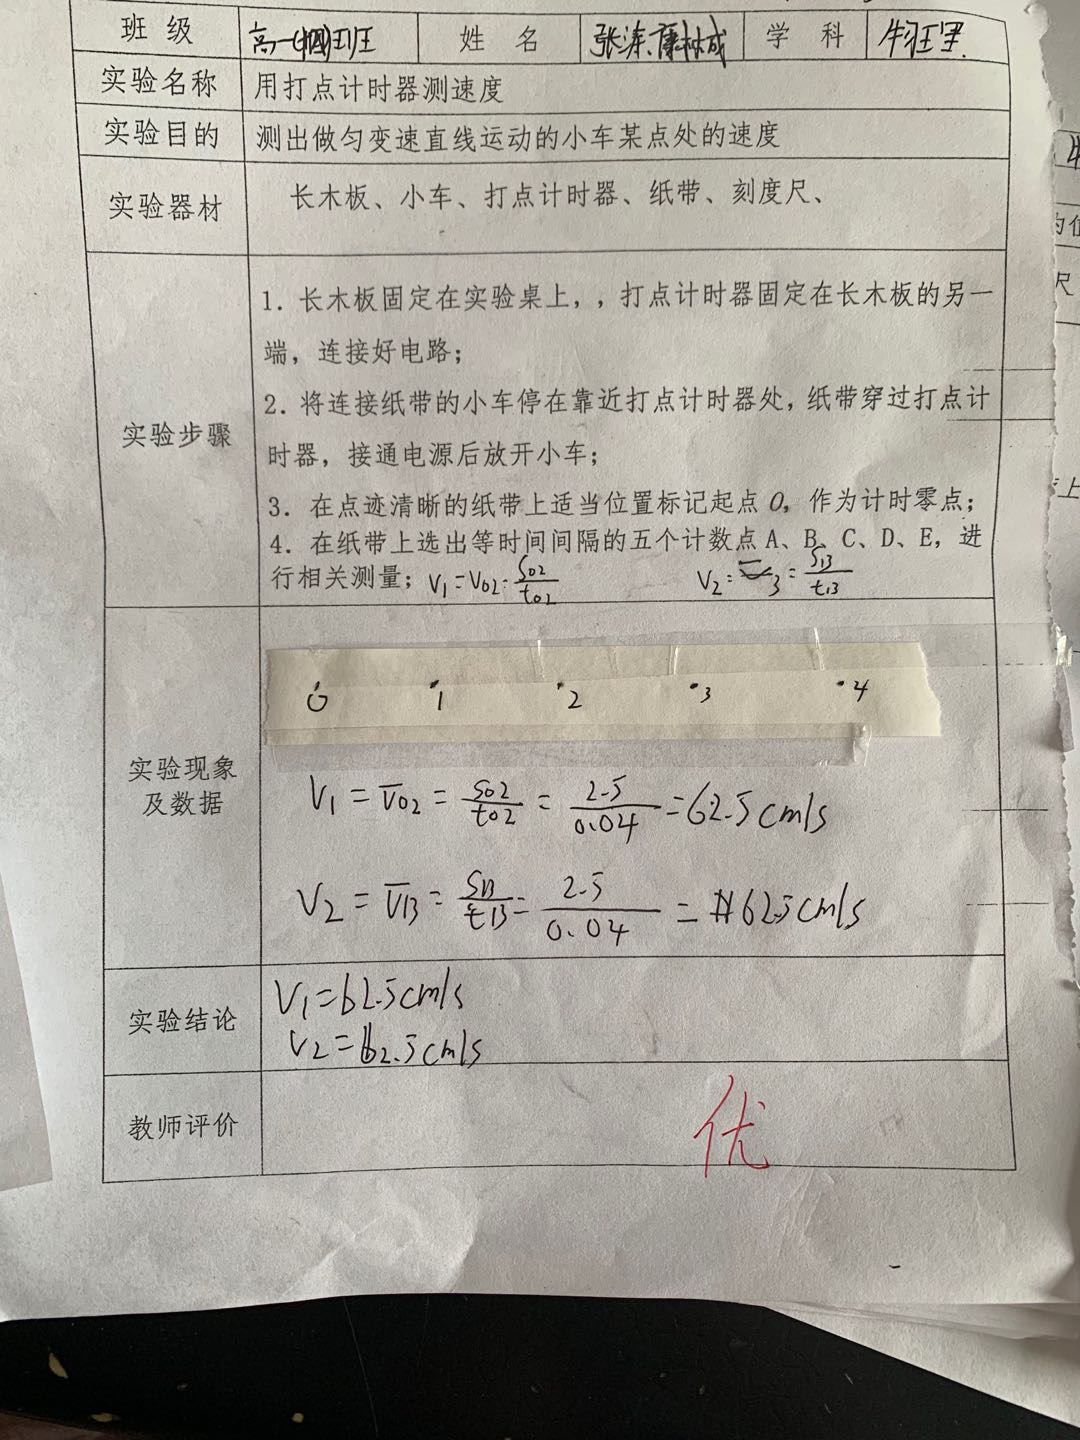 班 级 高一(四)班 姓 名 张涛、康林成 学 科 物理
实验名称 用打点计时器测速度
实验目的 测出做匀变速直线运动的小车某点处的速度
实验器材 长木板、小车、打点计时器、纸带、刻度尺、
1. 长木板固定在实验桌上，，打点计时器固定在长木板的另一
端，连接好电路；
2. 将连接纸带的小车停在靠近打点计时器处，纸带穿过打点计
实验步骤
时器，接通电源后放开小车；
3. 在点迹清晰的纸带上适当位置标记起点 O，作为计时零点；
4. 在纸带上选出等时间间隔的五个计数点 A、B、C、D、E，进
行相关测量； V1=V02=S02/t02 V2= 3=S13/t13
0 1 2 3 4
实验现象
及数据
V1=V̅02=S02/t02=2.5/0.04=62.5cm/s
V2=V̅13=S13/t13=2.5/0.04=62.5cm/s
实验结论
V1=62.5cm/s
V2=62.5cm/s
教师评价 优